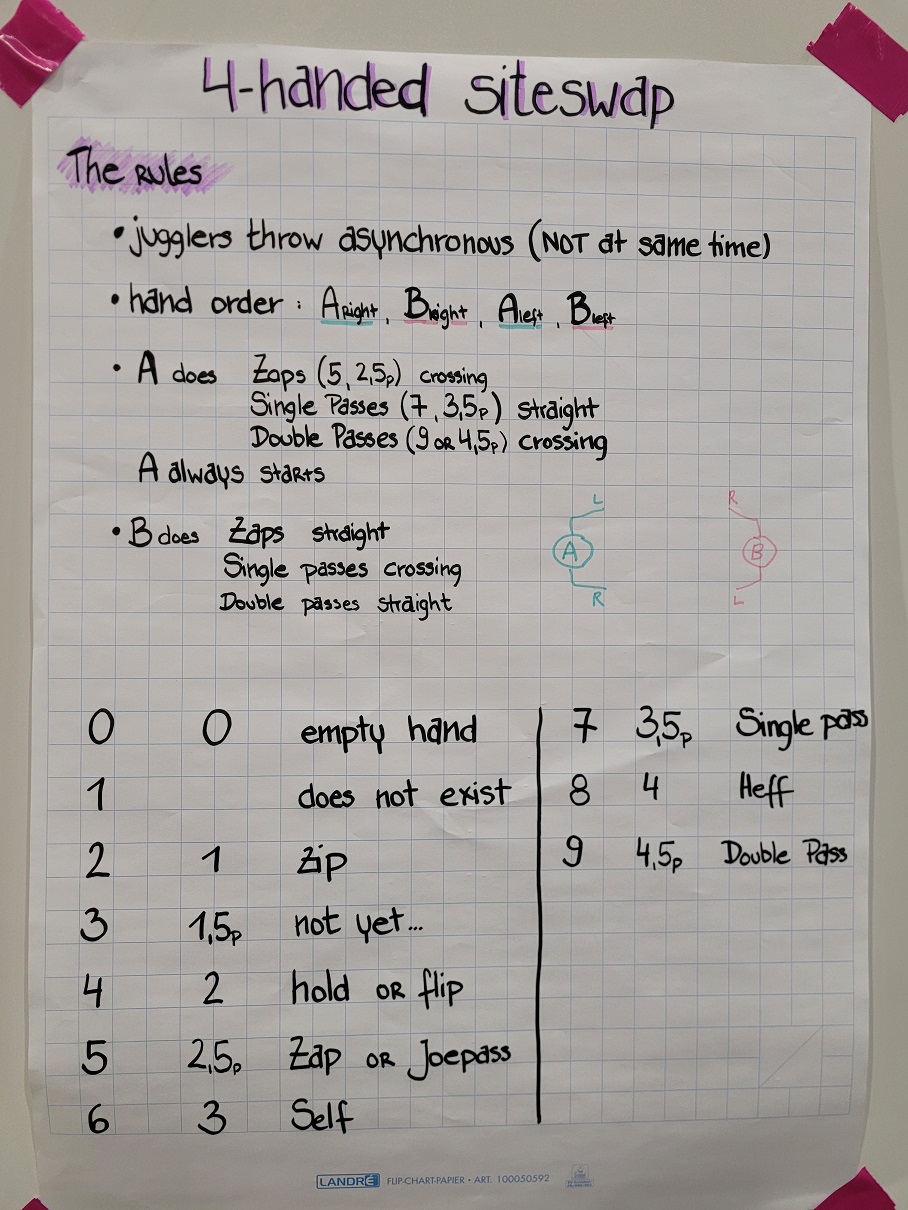 4-handed siteswap
The Rules
• jugglers throw asynchronous (NOT at same time)
• hand order: A Right, B Right, A left, B left
• A does Zaps (5, 2,5p) crossing
Single Passes (7, 3,5p) straight
Double Passes (9 OR 4,5p) crossing
A always starts
• B does Zaps straight
Single passes crossing
Double passes straight
L
A
R
R
B
L
0 0 empty hand
1 does not exist
2 1 Zip
3 1,5p not yet...
4 2 hold OR flip
5 2,5p Zap OR Joepass
6 3 Self
7 3,5p Single pass
8 4 Heff
9 4,5p Double Pass
LANDRÉ FLIP-CHART-PAPIER • ART. 100050592